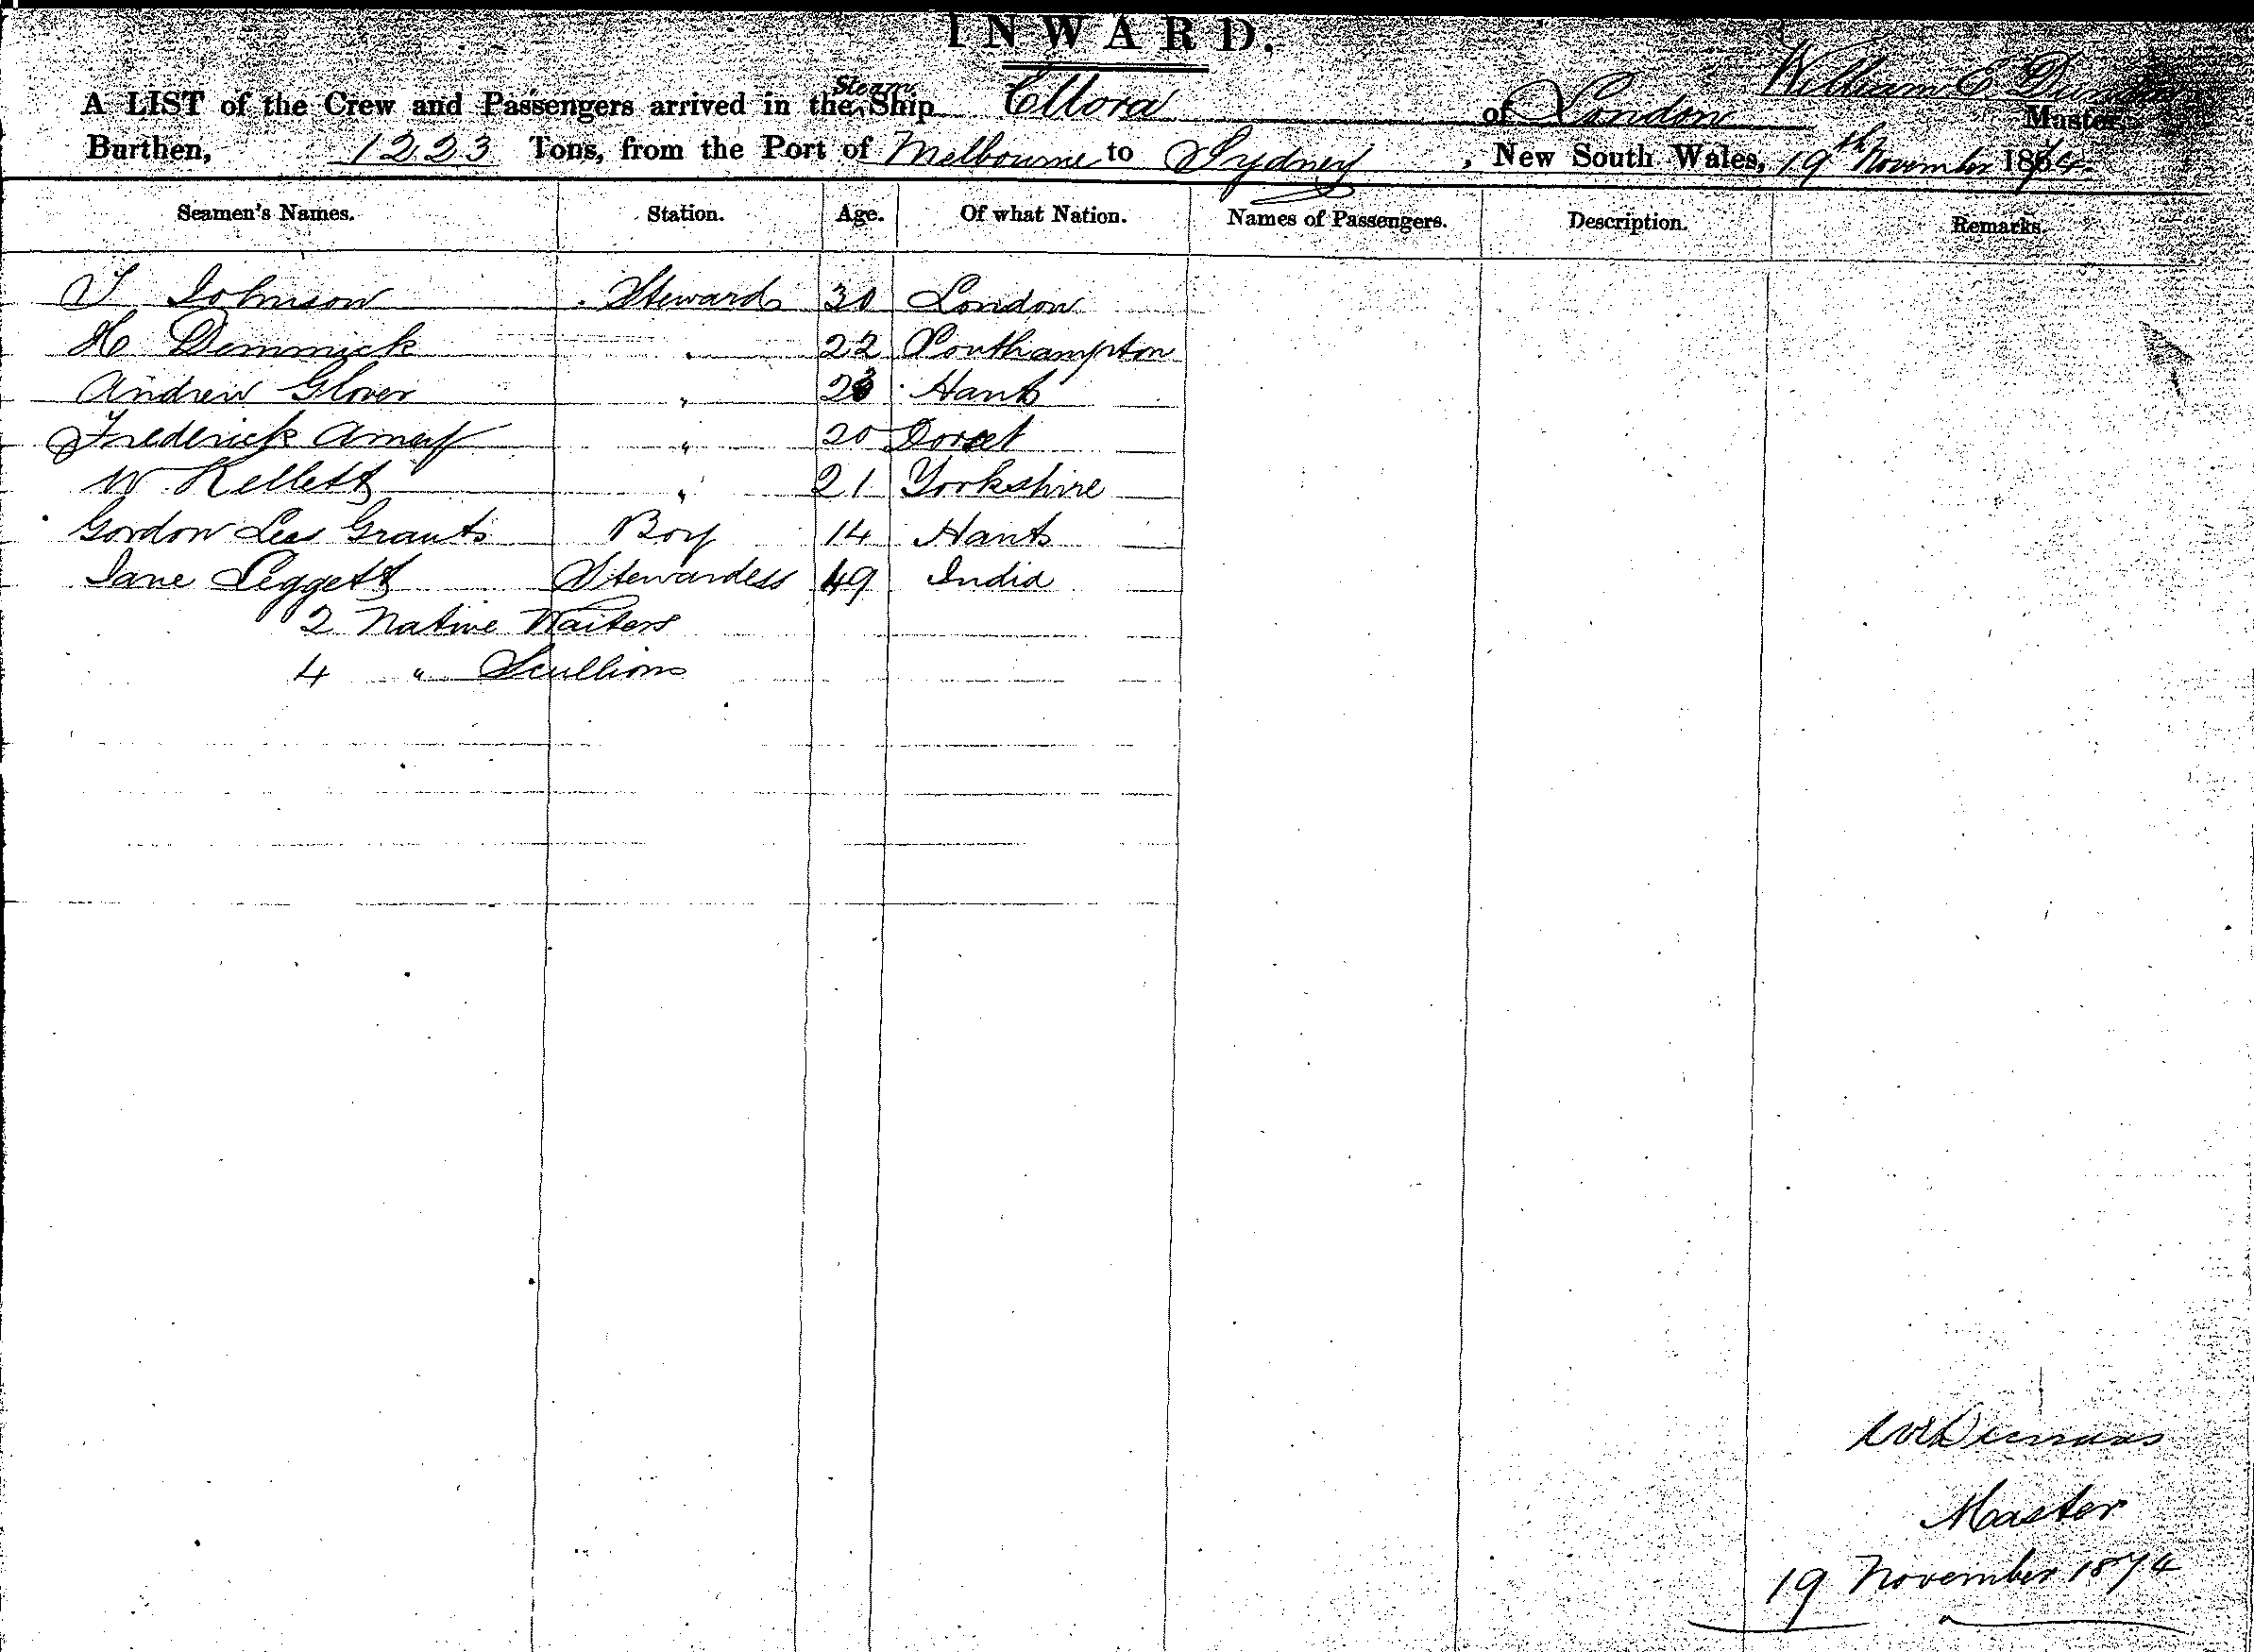 INWARD.
A LIST of the Crew and Passengers arrived in the Steam Ship Ellora of London William E Master,
Burthen, 1223 Tons, from the Port of Melbourne to Sydney, New South Wales, 19th November 1874
Seamen's Names. Station. Age. Of what Nation. Names of Passengers. Description. Remarks.
T Johnson Steward 30 London
H Dimmick " 22 Southampton
Andrew Glover " 23 Hants
Frederick Amey " 20 Dorset
W Kellett " 21 Yorkshire
Gordon Lees Grants Boy 14 Hants
Jane Leggett Stewardess 49 India
2 Native Waiters
4 " Scullions
Master
19 November 1874